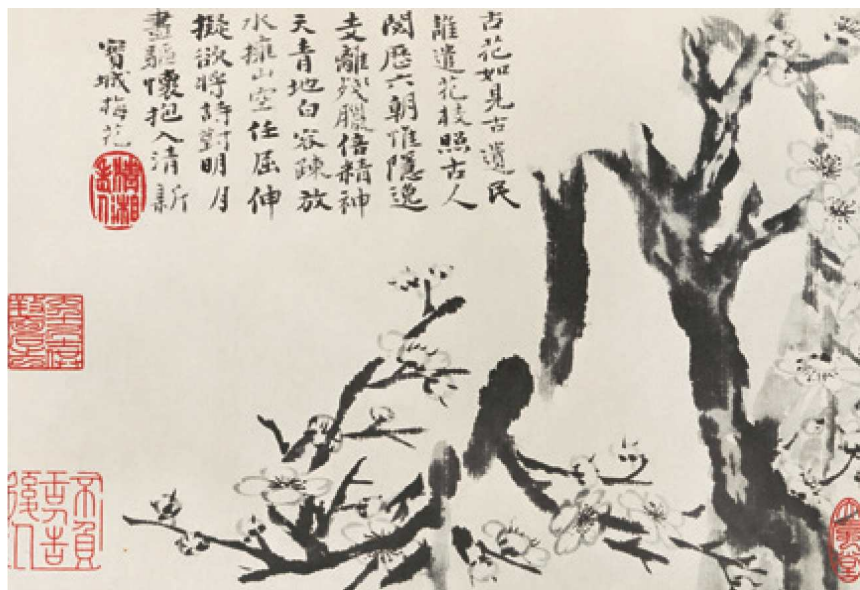 古花如見古遺民
誰遣花枝照古人
閱歷六朝惟隱逸
支離殘臘倍精神
天青地白容疎放
水擁山空任屈伸
擬欲將詩對明月
盡驅懷抱入清新
寶城梅花
清湘老人